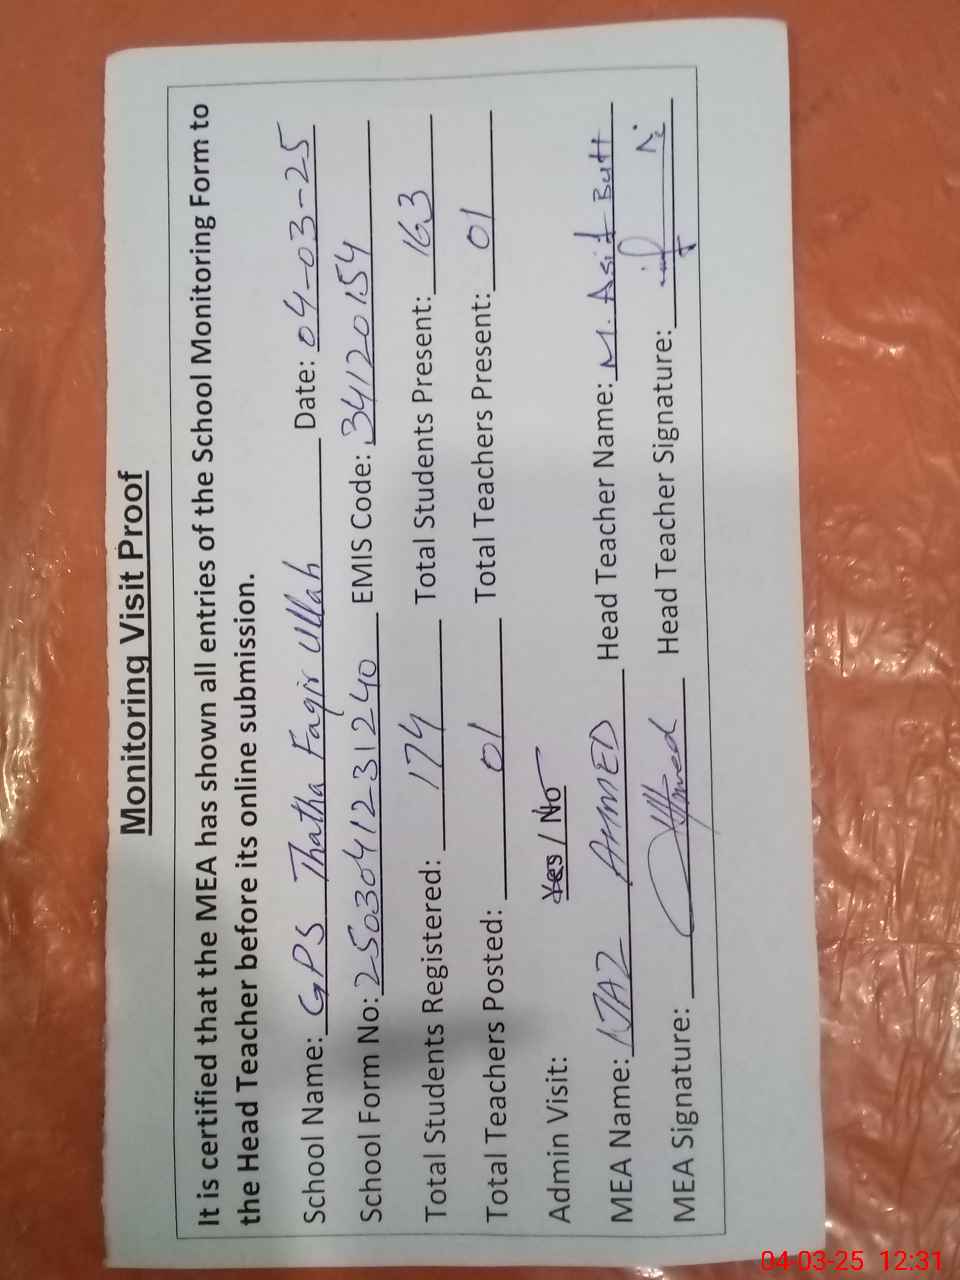 Monitoring Visit Proof
It is certified that the MEA has shown all entries of the School Monitoring Form to
the Head Teacher before its online submission.
School Name: GPS Thatha Faqir Ullah Date: 04-03-25
School Form No: 2503041231240 EMIS Code: 34120154
Total Students Registered: 174 Total Students Present: 163
Total Teachers Posted: 01 Total Teachers Present: 01
Admin Visit: Yes / No
MEA Name: IJAZ AHMED Head Teacher Name: M. Asif Butt
MEA Signature: Head Teacher Signature:
04-03-25 12:31